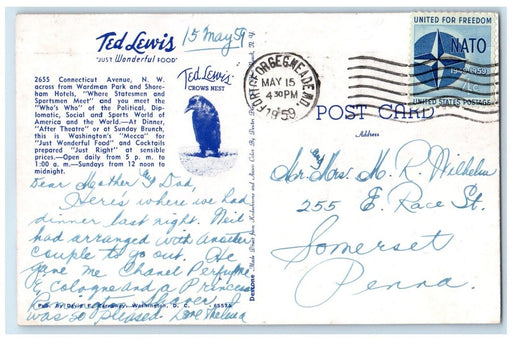 Ted Lewis
"JUST Wonderful FOOD"
15 May 59
2655 Connecticut Avenue, N. W.
across from Wardman Park and Shore-
ham Hotels, "Where Statesmen and
Sportsmen Meet" and you meet the
"Who's Who" of the Political, Dip-
lomatic, Social and Sports World of
America and the World.—At Dinner,
"After Theatre" or at Sunday Brunch,
this is Washington's "Mecca" for
"Just Wonderful Food" and Cocktails
prepared "Just Right" at sensible
prices.—Open daily from 5 p. m. to
1:00 a. m.—Sundays from 12 noon to
midnight.
Ted Lewis'
CROWS NEST
FORT GEORGE G. MEADE, MD.
MAY 15
4 30 PM
1959
UNITED FOR FREEDOM
NATO
1949-1959
4c
UNITED STATES POSTAGE
POST CARD
Address
Dear Mother & Dad,
Here's where we had
dinner last night. Neil
had arranged with another
couple to go out. He
gave me Chanel Perfume
& cologne and a Princess
I
was so pleased. Love Thelma
Mr. & Mrs. M. R. Wilhelm
255 E. Race St.
Somerset
Penna.